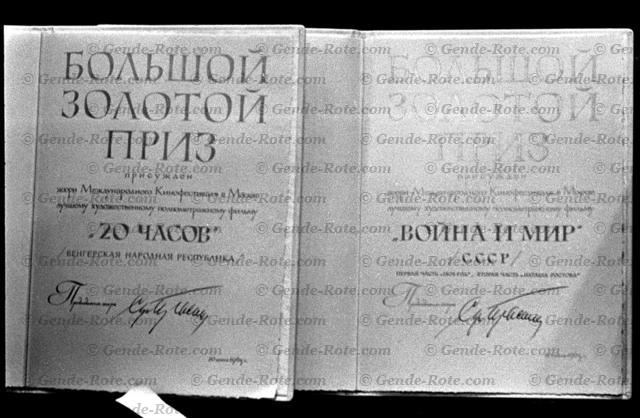 БОЛЬШОЙ
ЗОЛОТОЙ
ПРИЗ
присужден
жюри Международного Кинофестиваля в Москве
лучшему художественному полнометражному фильму
„20 ЧАСОВ"
ВЕНГЕРСКАЯ НАРОДНАЯ РЕСПУБЛИКА
Председатель жюри
20 июля 1965 г.
БОЛЬШОЙ
ЗОЛОТОЙ
ПРИЗ
присужден
жюри Международного Кинофестиваля в Москве
лучшему художественному полнометражному фильму
„ВОЙНА И МИР"
/СССР/
ПЕРВАЯ ЧАСТЬ ВТОРАЯ ЧАСТЬ „НАТАША РОСТОВА"
Председатель жюри
1965 г.
© Gende-Rote.com